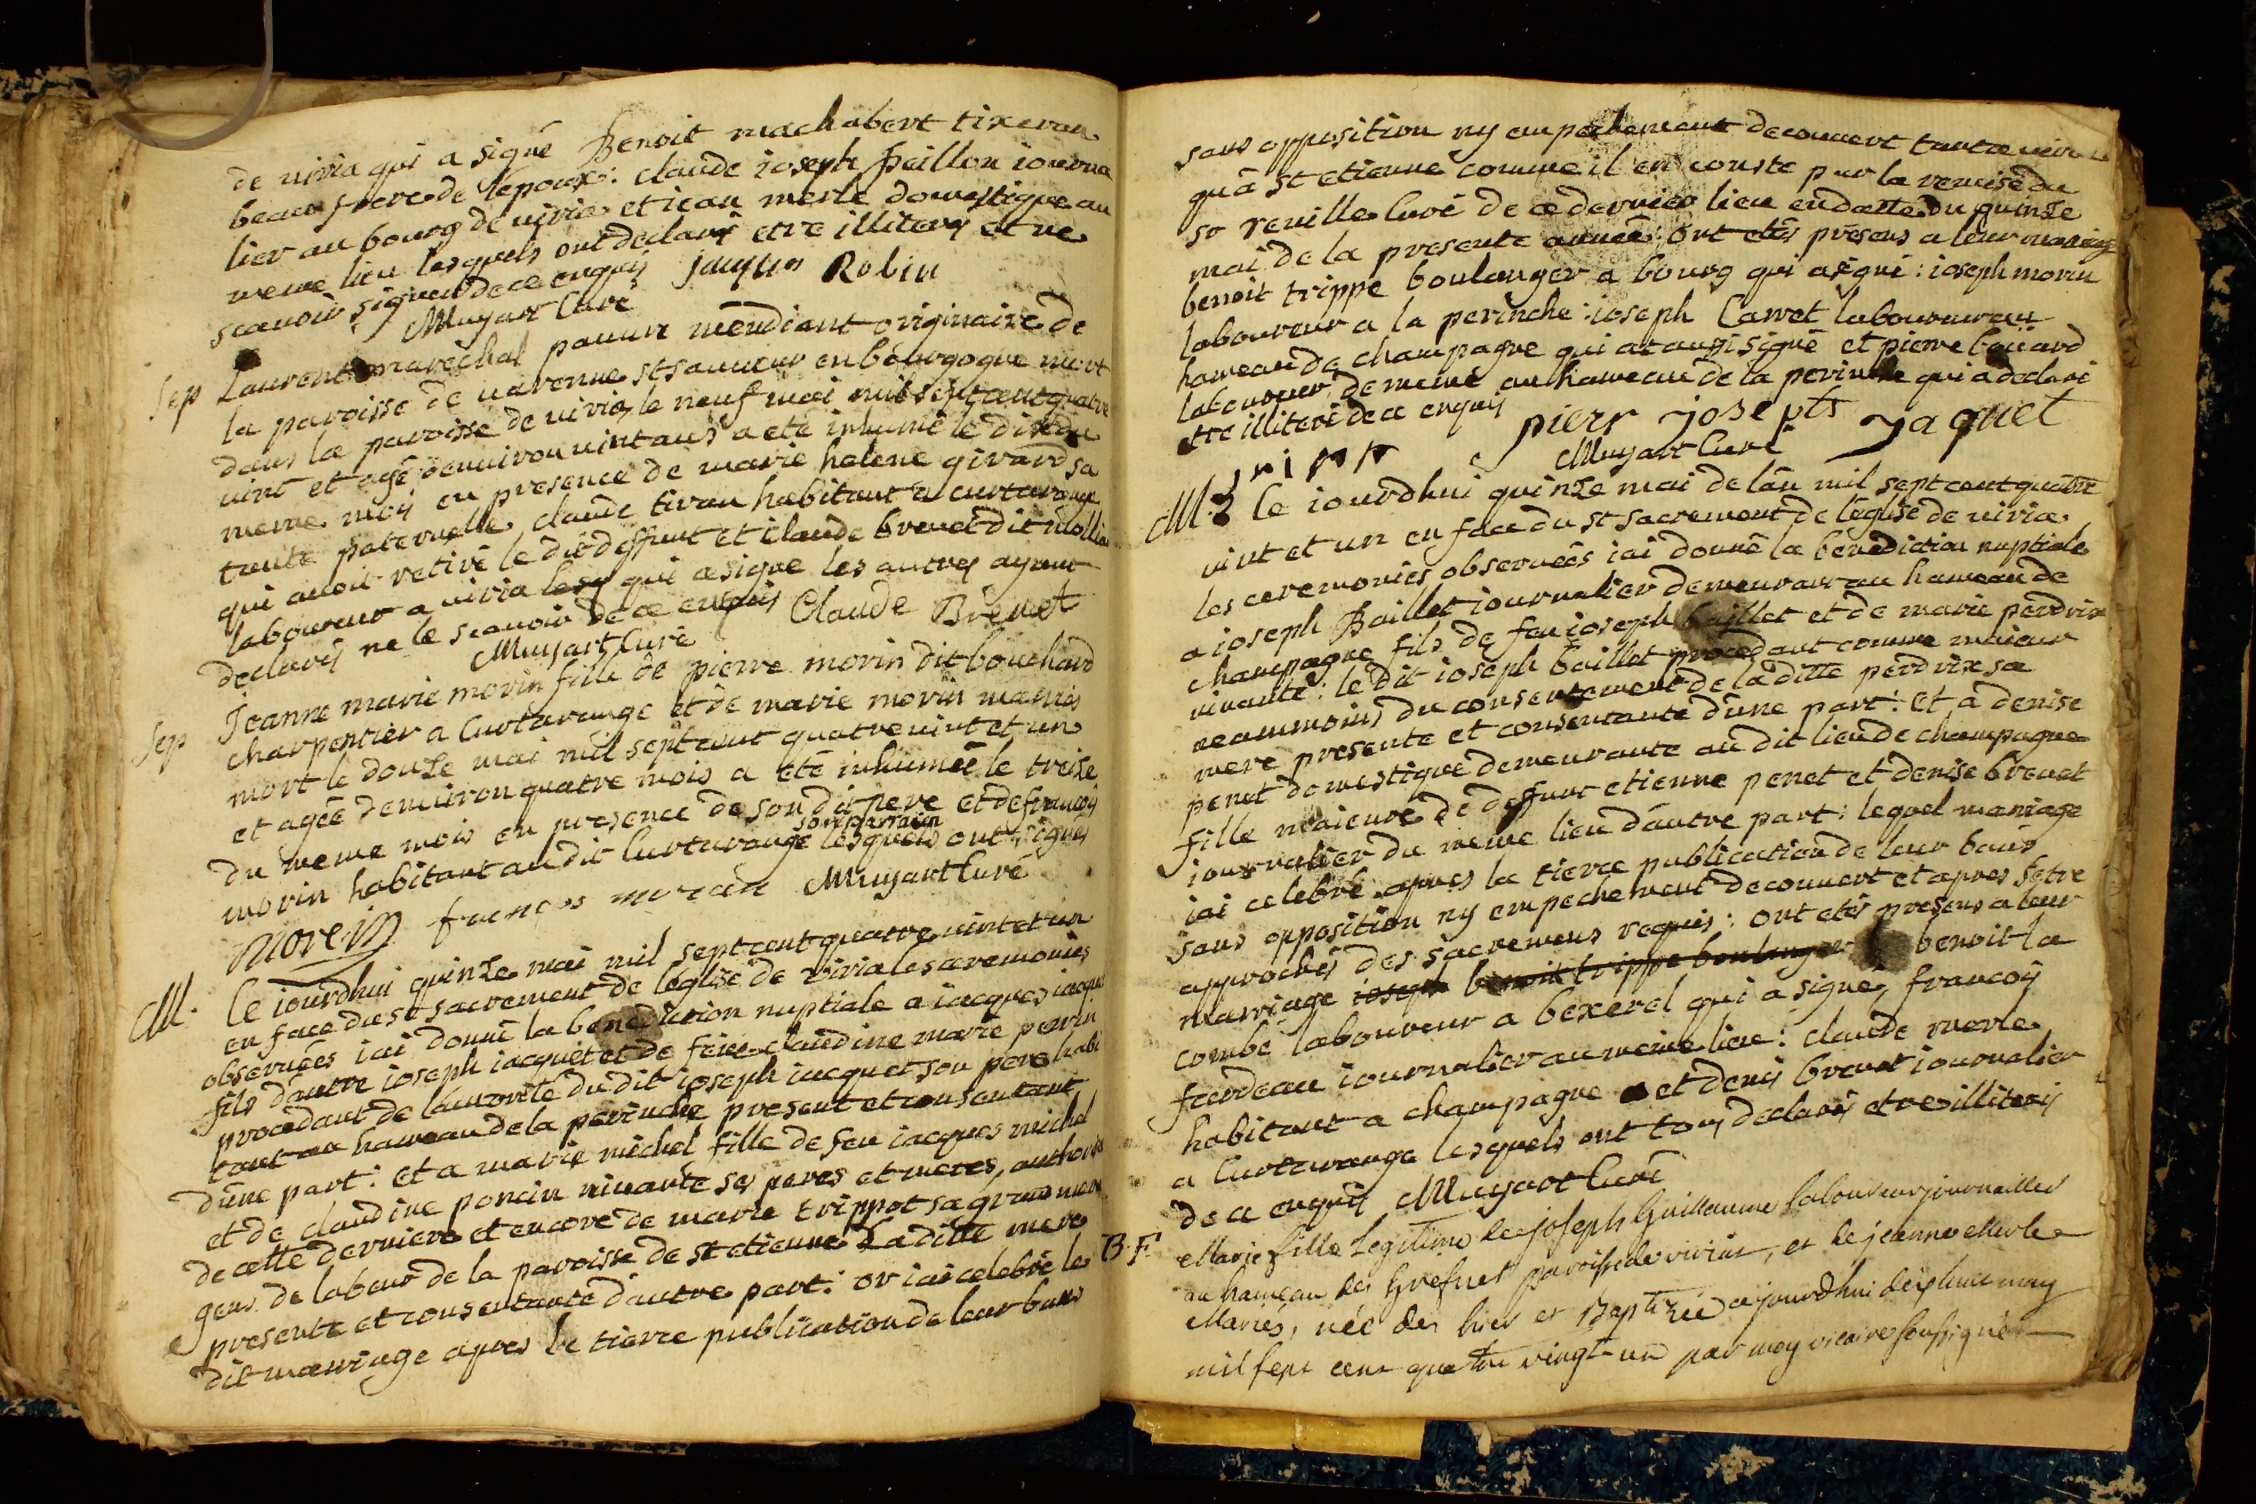 de viria qui a signé Benoit machabert tixeran
beau frere de l'epoux: claude ioseph paillon iourna
lier au bourg de viria et iean merle domestique au
meme lieu lesquels ont declarés etre illiterés et ne
scavoir signer de ce enquis jaques Robin
Muyart Curé
Sep Laurent marechal pauvre mendiant originaire de
la paroisse de varenne st sauveur en bourgogne mort
dans la paroisse de viria le neuf mai mil sept cent quatre
vint et agé denviron vint ans a eté inhumé le dix du
meme mois en presence de marie helene girard sa
tante paternelle, claude tiran habitant a curtarange
qui avoit retiré le dit deffunt et claude brevet dit
laboureur a viria qui a signe les autres ayant
declarés ne le scavoir de ce enquis Claude Brevet
Muyart Curé
Sep Jeanne marie morin fille de pierre morin dit bouchard
charpentier a Curtarange et de marie morin mariés
mort le douze mai mil sept cent quatre vint et un
et agée denviron quatre mois a été inhumée le treise
du meme mois en presence de son dit pere et de francois
son parrain
morin habitant au dit Curtarange lesquels ont signés
morein francois morin Muyart Curé
M. Le iourdhui quinze mai mil sept cent quatre vint et un
en face du st sacrement de leglise de viria les ceremonies
observées iai donné la benediction nuptiale a iacques iacquet
fils dautre ioseph iacquet et de feue claudine marie perrin
procedant de lautorité du dit ioseph iacquet son pere habi
tant au hameau de la perinche present et consentant
d'une part: et a marie michel fille de feu iacques michel
et de claudine poncin vivante ses peres et meres, authorisé
de cette derniere et encore de marie trippot sa grand mere
gens de labeur de la paroisse de st etienne La ditte mere
presente et consentante d'autre part: or iai celebré le
dit mariage apres la tierce publication de leur bans
sans opposition ny empechement decouvert tant a viria
qu'a st etienne comme il en conste par la remise du
sr reville Curé de ce dernier lieu en datte du quinze
mai de la presente année: ont etés presens a leur mariage
benoit trippe boulanger a bourg qui a signé: ioseph morin
laboureur a la perinche: ioseph Carret laboureur au
hameau de champagne qui a aussi signé et pierre bouard
laboureur de meme au hameau de la perinche qui a declaré
etre illiteré de ce enquis piere josepts jaquet
tripp Muyart Curé
M. Le iourdhui quinze mai de l'an mil sept cent quatre
vint et un en face du st sacrement de l'eglise de viria
les ceremonies observées iai donné la benediction nuptiale
a ioseph Baillet iournalier demeurant au hameau de
champagne fils de feu ioseph baillet et de marie perdrix
vivante: le dit ioseph baillet procedant comme maieur
neanmoins du consentement de la ditte perdrix sa
mere presente et consentante d'une part: et a denise
penet domestique demeurante au dit lieu de champagne
fille maieure de deffunt etienne penet et denise brevet
iournalier du meme lieu d'autre part: lequel mariage
iai celebré apres la tierce publication de leur bans
sans opposition ny empechement decouvert et apres setre
approchés des sacremens requis: ont etés presens a leur
mariage ioseph benoit trippe boulanger benoit la
combe laboureur a bexerel qui a signé, francois
fardeau iournalier au meme lieu: claude merle
habitant a champagne et denis brevet iournalier
a Curtarange lesquels ont tous declarés etre illiterés
de ce enquis Muyart Curé
B.F. Marie fille Legitime de joseph Guillaume Laboureur journallier
au hameau des Grefset paroisse de viriat, et de jeanne Merle
Mariés, née des hier et Baptizée ajourdhui dixhuit may
mil sept cent quatre vingt un par moy vicaire soussigné